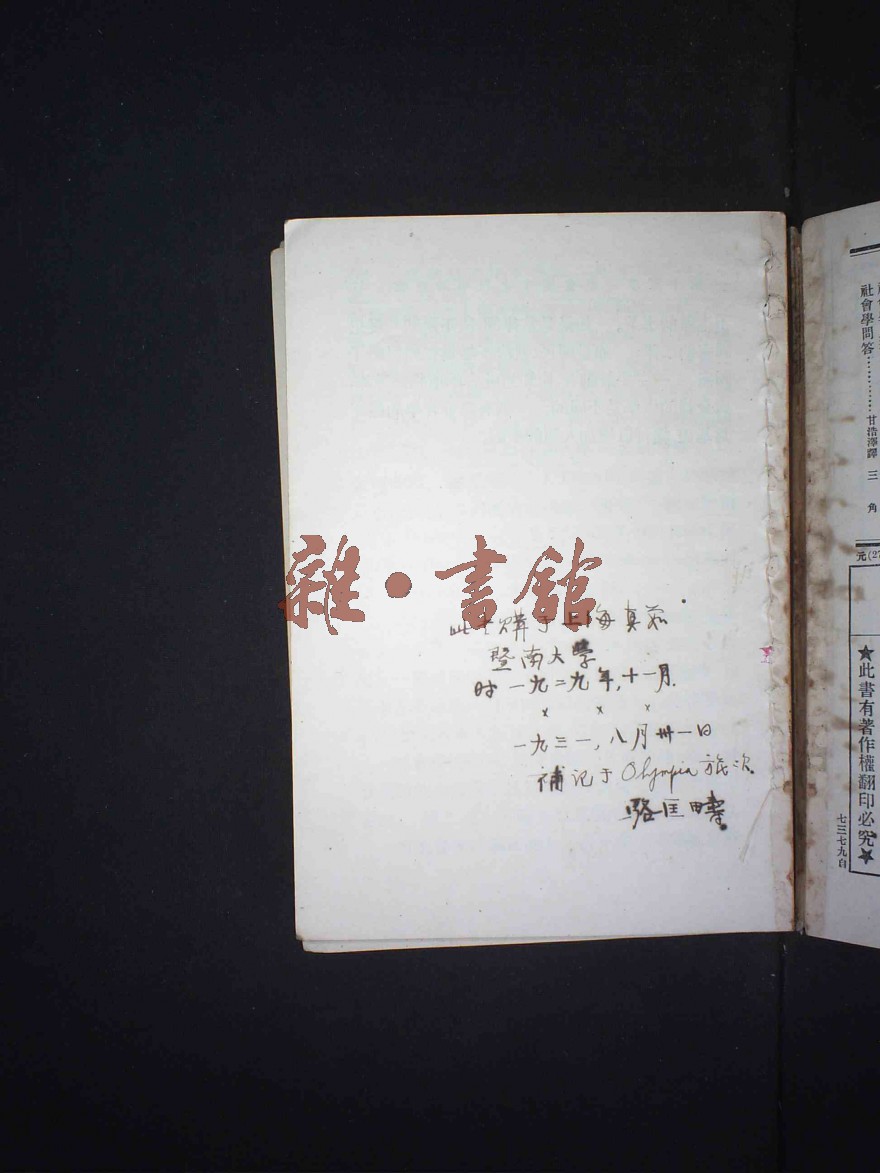 雜·書館
此書購于上海真茹
暨南大學
时一九二九年,十一月.
x x x
一九三一,八月卅一日
補记于Olympia旅次.
駱匡疇
社會學問答…………甘浩澤譯 三 角
元(27
★此書有著作權翻印必究★
七三七九白